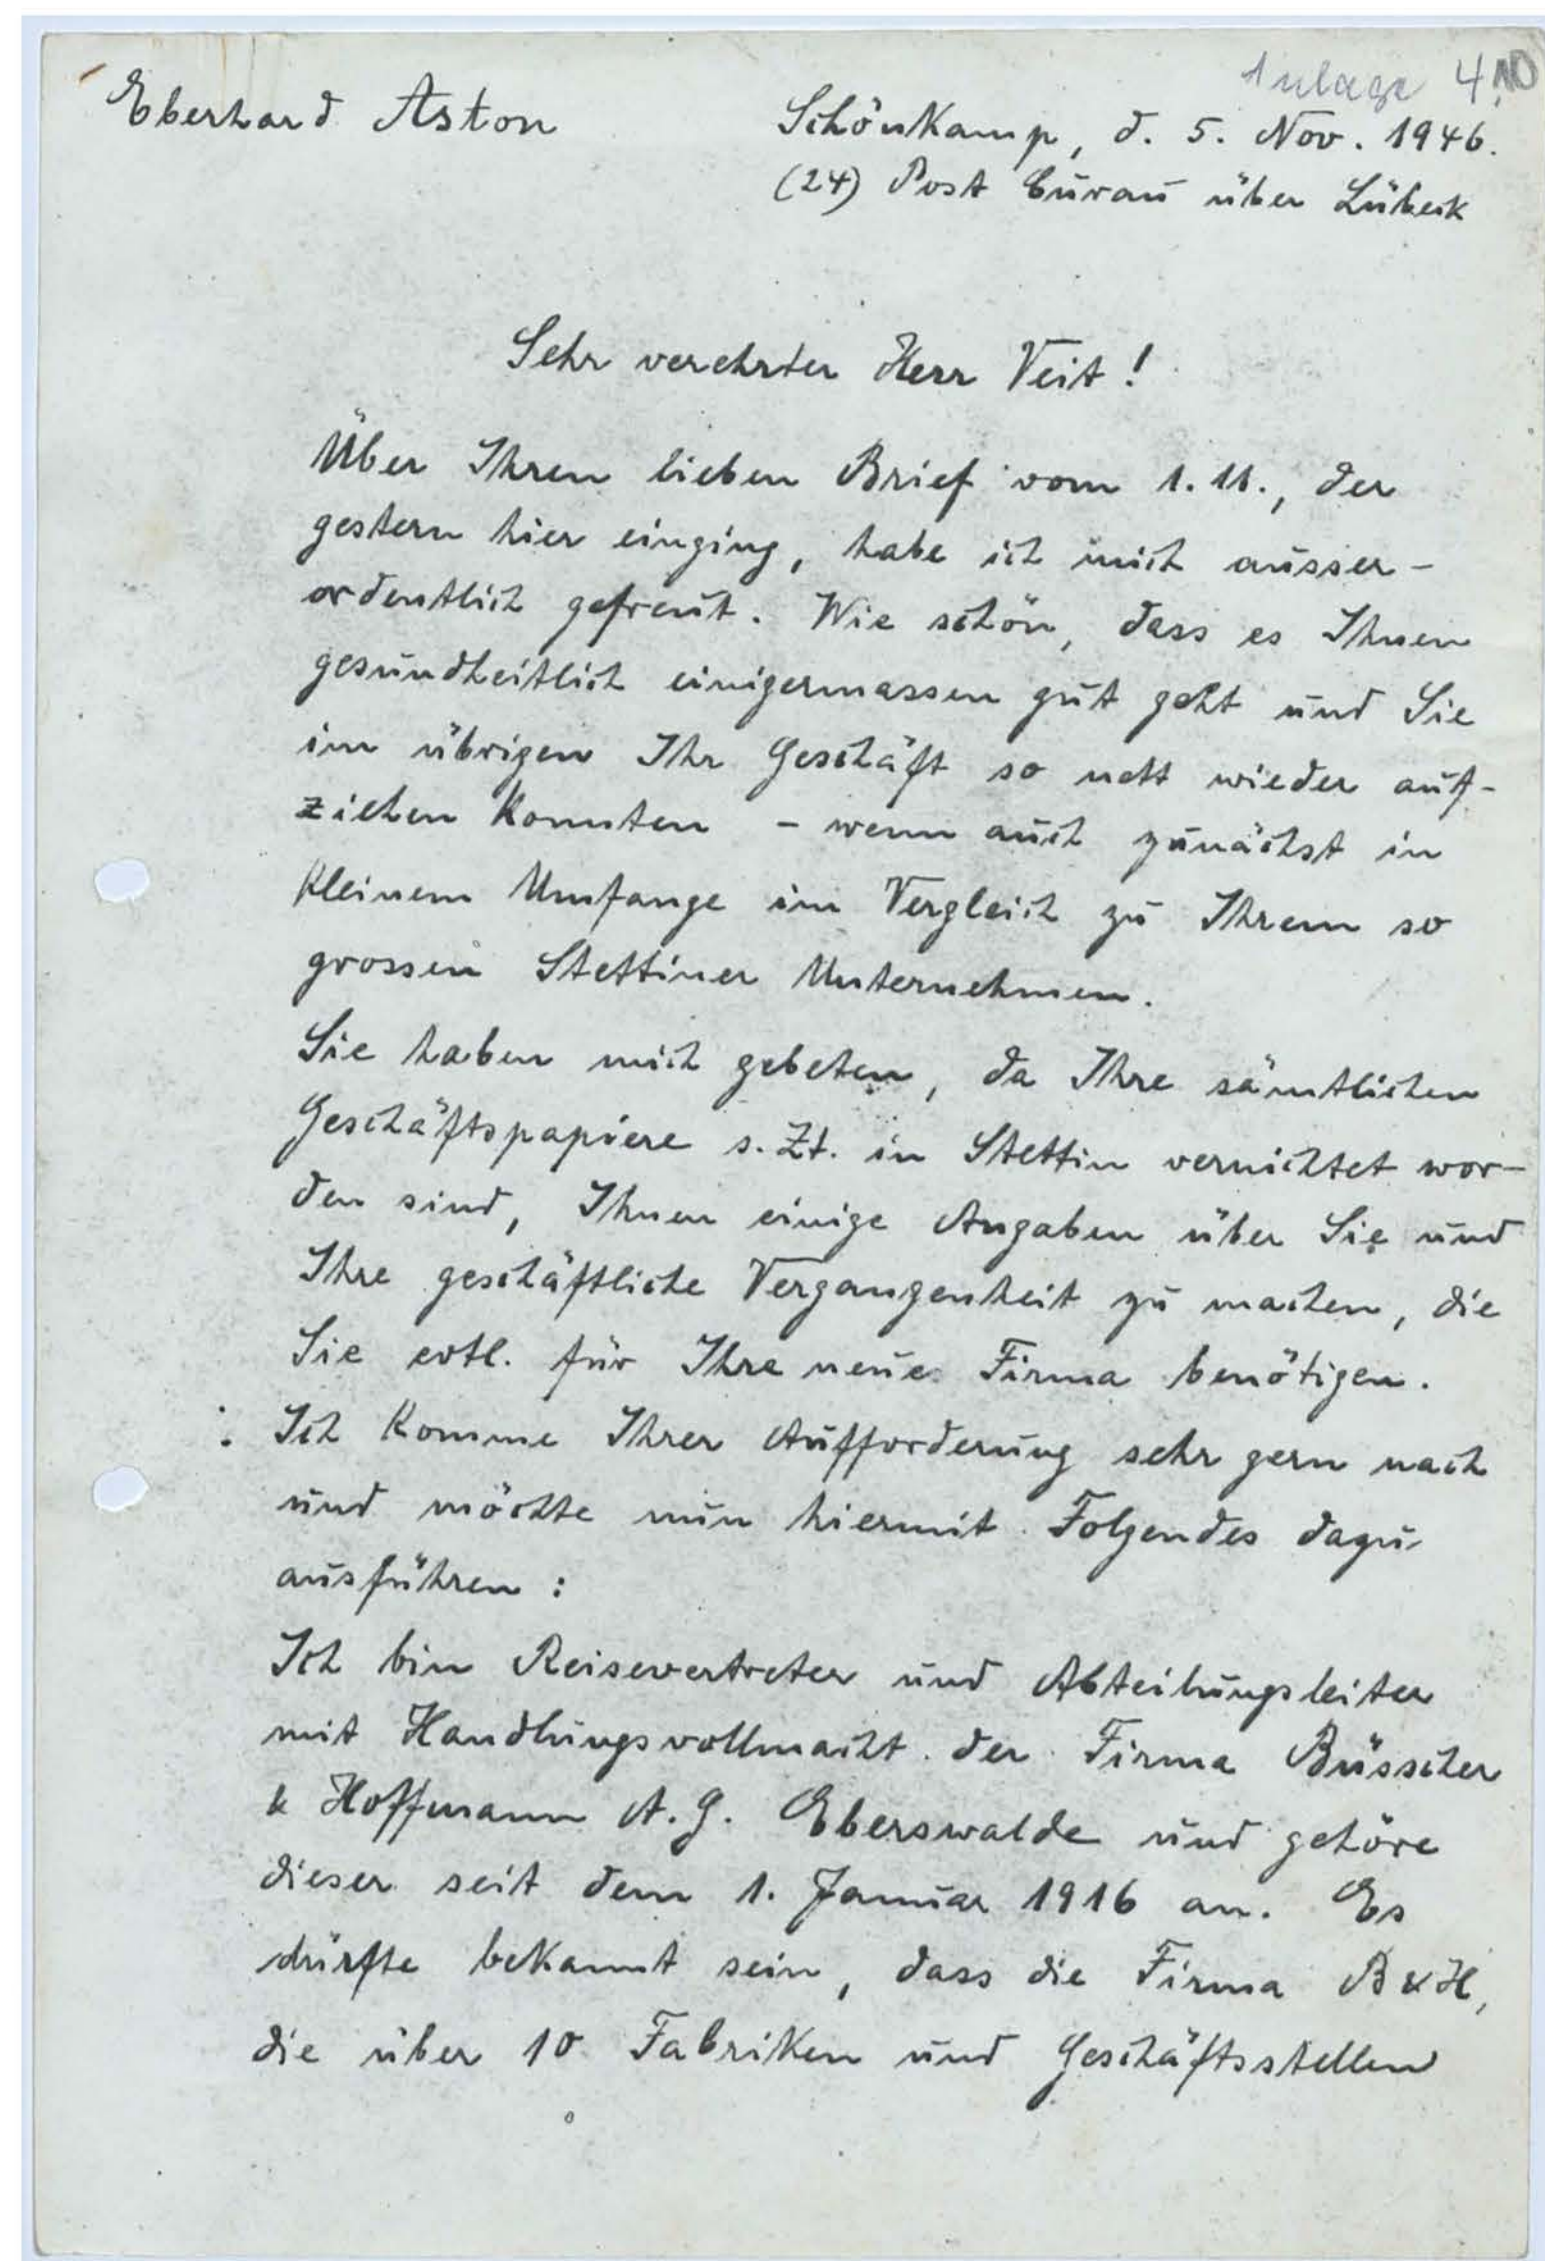 Anlage 4,10
Eberhard Aston
Schönkamp, d. 5. Nov. 1946.
(24) Post Curau über Lübeck
Sehr verehrter Herr Veit!
Über Ihren lieben Brief vom 1.11., der
gestern hier einging, habe ich mich ausser-
ordentlich gefreut. Wie schön, dass es Ihnen
gesundheitlich einigermassen gut geht und Sie
im übrigen Ihr Geschäft so nett wieder auf-
ziehen konnten - wenn auch zunächst in
kleinem Umfange im Vergleich zu Ihrem so
grossen Stettiner Unternehmen.
Sie haben mich gebeten, da Ihre sämtlichen
Geschäftspapiere s. Zt. in Stettin vernichtet wor-
den sind, Ihnen einige Angaben über Sie und
Ihre geschäftliche Vergangenheit zu machen, die
Sie evtl. für Ihre neue Firma benötigen.
Ich komme Ihrer Aufforderung sehr gern nach
und möchte nun hiermit Folgendes dazu
ausführen:
Ich bin Reisevertreter und Abteilungsleiter
mit Handlungsvollmacht der Firma Büsscher
& Hoffmann A.G. Eberswalde und gehöre
dieser seit dem 1. Januar 1916 an. Es
dürfte bekannt sein, dass die Firma B & H,
die über 10 Fabriken und Geschäftsstellen